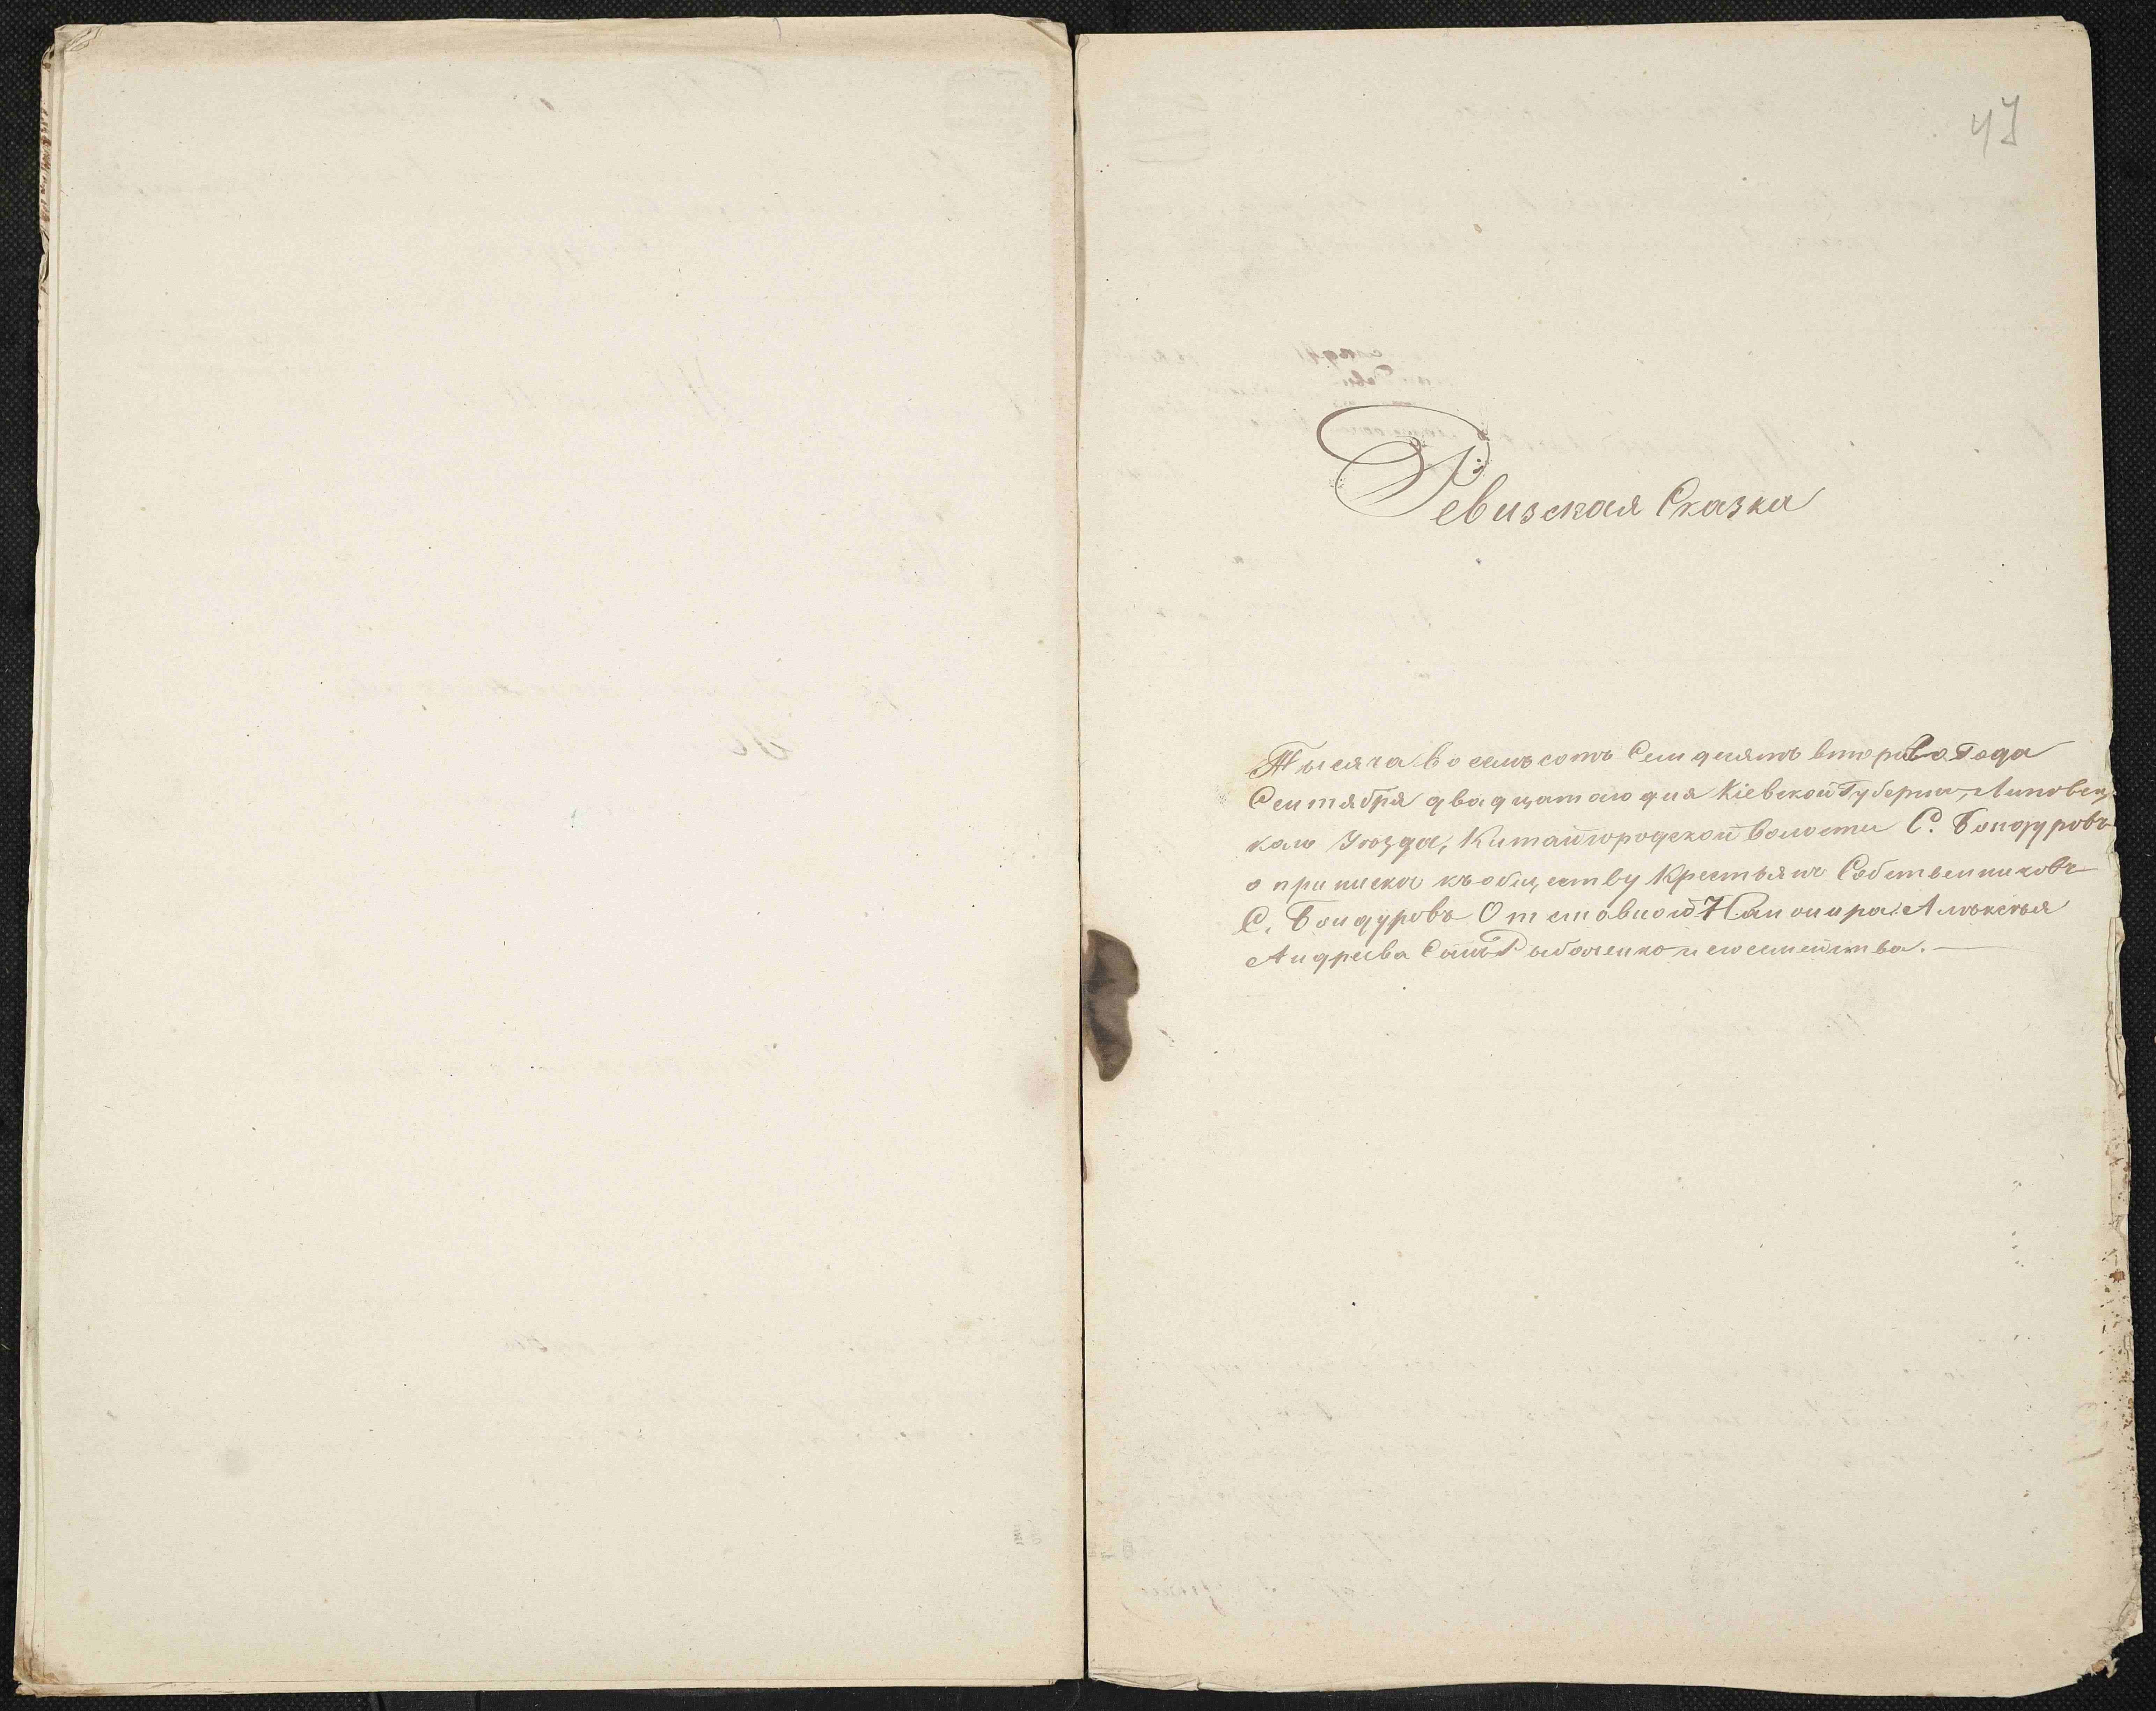 47
Ревизская Сказка
Тысяча восемьсотъ Семдесятъ втораго Года
Сентября двадцатаго дня Кіевской Губерніи, Липовец
каго Уѣзда, Китайгородской волости С. Бондуровъ
о приписки къ обществу Крестьянъ Собственниковъ
С. Бондуровъ Отставной Канонира Алѣксѣя
Андреева Сынъ Рыбаченко и его семейства. —